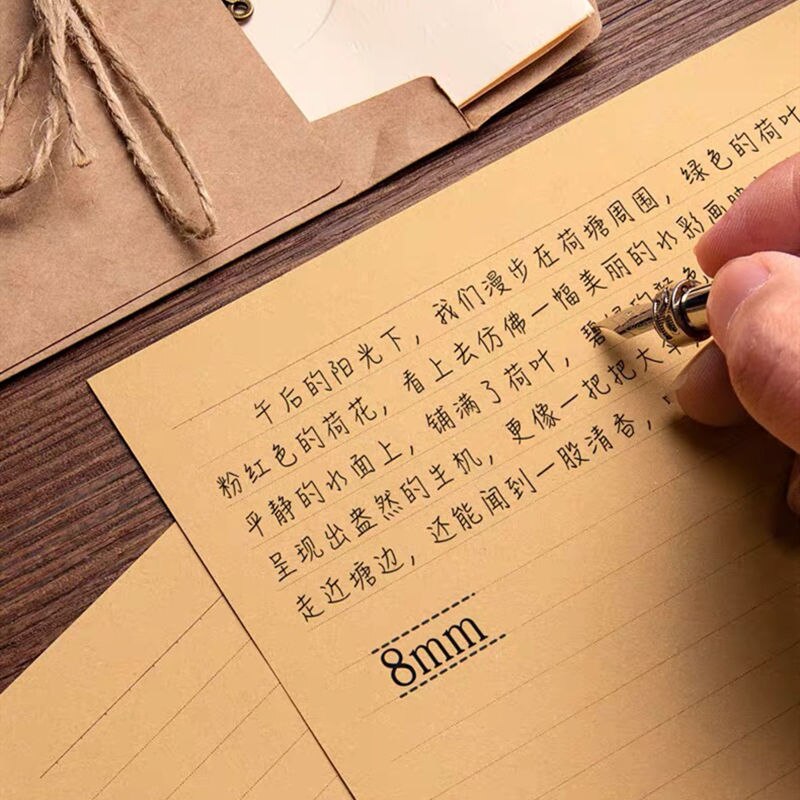 午后的阳光下，我们漫步在荷塘周围，绿色的荷叶
粉红色的荷花，看上去仿佛一幅美丽的水彩画映
平静的水面上，铺满了荷叶，碧绿的
呈现出盎然的生机，更像一把把大
走近塘边，还能闻到一股清香，
8mm